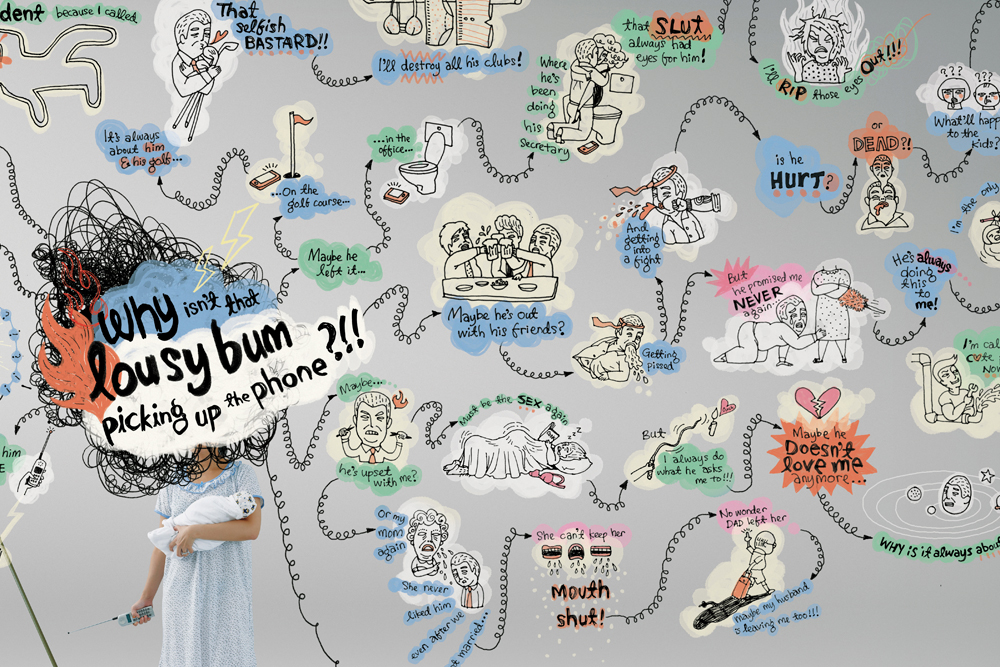 dent because I called
That
selfish
BASTARD!!
It's always
about him
& his golf...
I'll destroy all his clubs!
that SLUT
always had
eyes for him!
Where
he's
been
doing
his
secretary
I'll RIP those eyes Out!!!
??? ???
What'll happ
to the
kids?
...in the
office...
...On the
golf course...
Maybe he
left it...
And
getting
into
a fight
is he
HURT?
or
DEAD?!
I'm the only
He's always
doing
this
to
me!
But
he promised me
NEVER
again!
Maybe he's out
with his friends?
Getting
pissed
Why isn't that
lousy bum
picking up the phone?!!
Maybe...
he's upset
with me?
Must be the SEX again
zzz
But
I always do
what he asks
me to!!!
Maybe he
Doesn't
love me
anymore...
I'm cal
Now
WHY is it always abou
him
E
Or my
mom
again
She never
liked him
even after we
married...
She can't keep her
Mouth
shut!
No wonder
DAD left her
maybe my husband
is leaving me too!!!